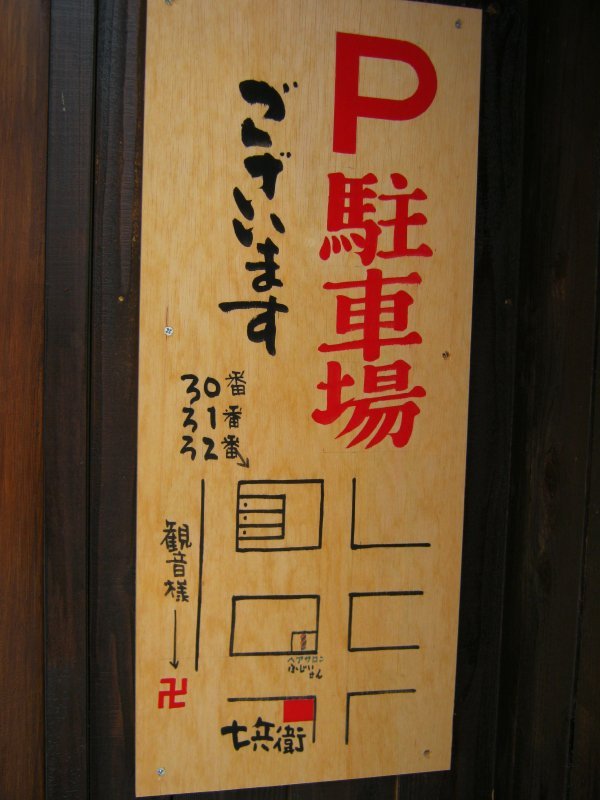 P
駐車場
ございます
30番
31番
32番
観音様
卍
ヘアサロン
ふじい
さん
七兵衛